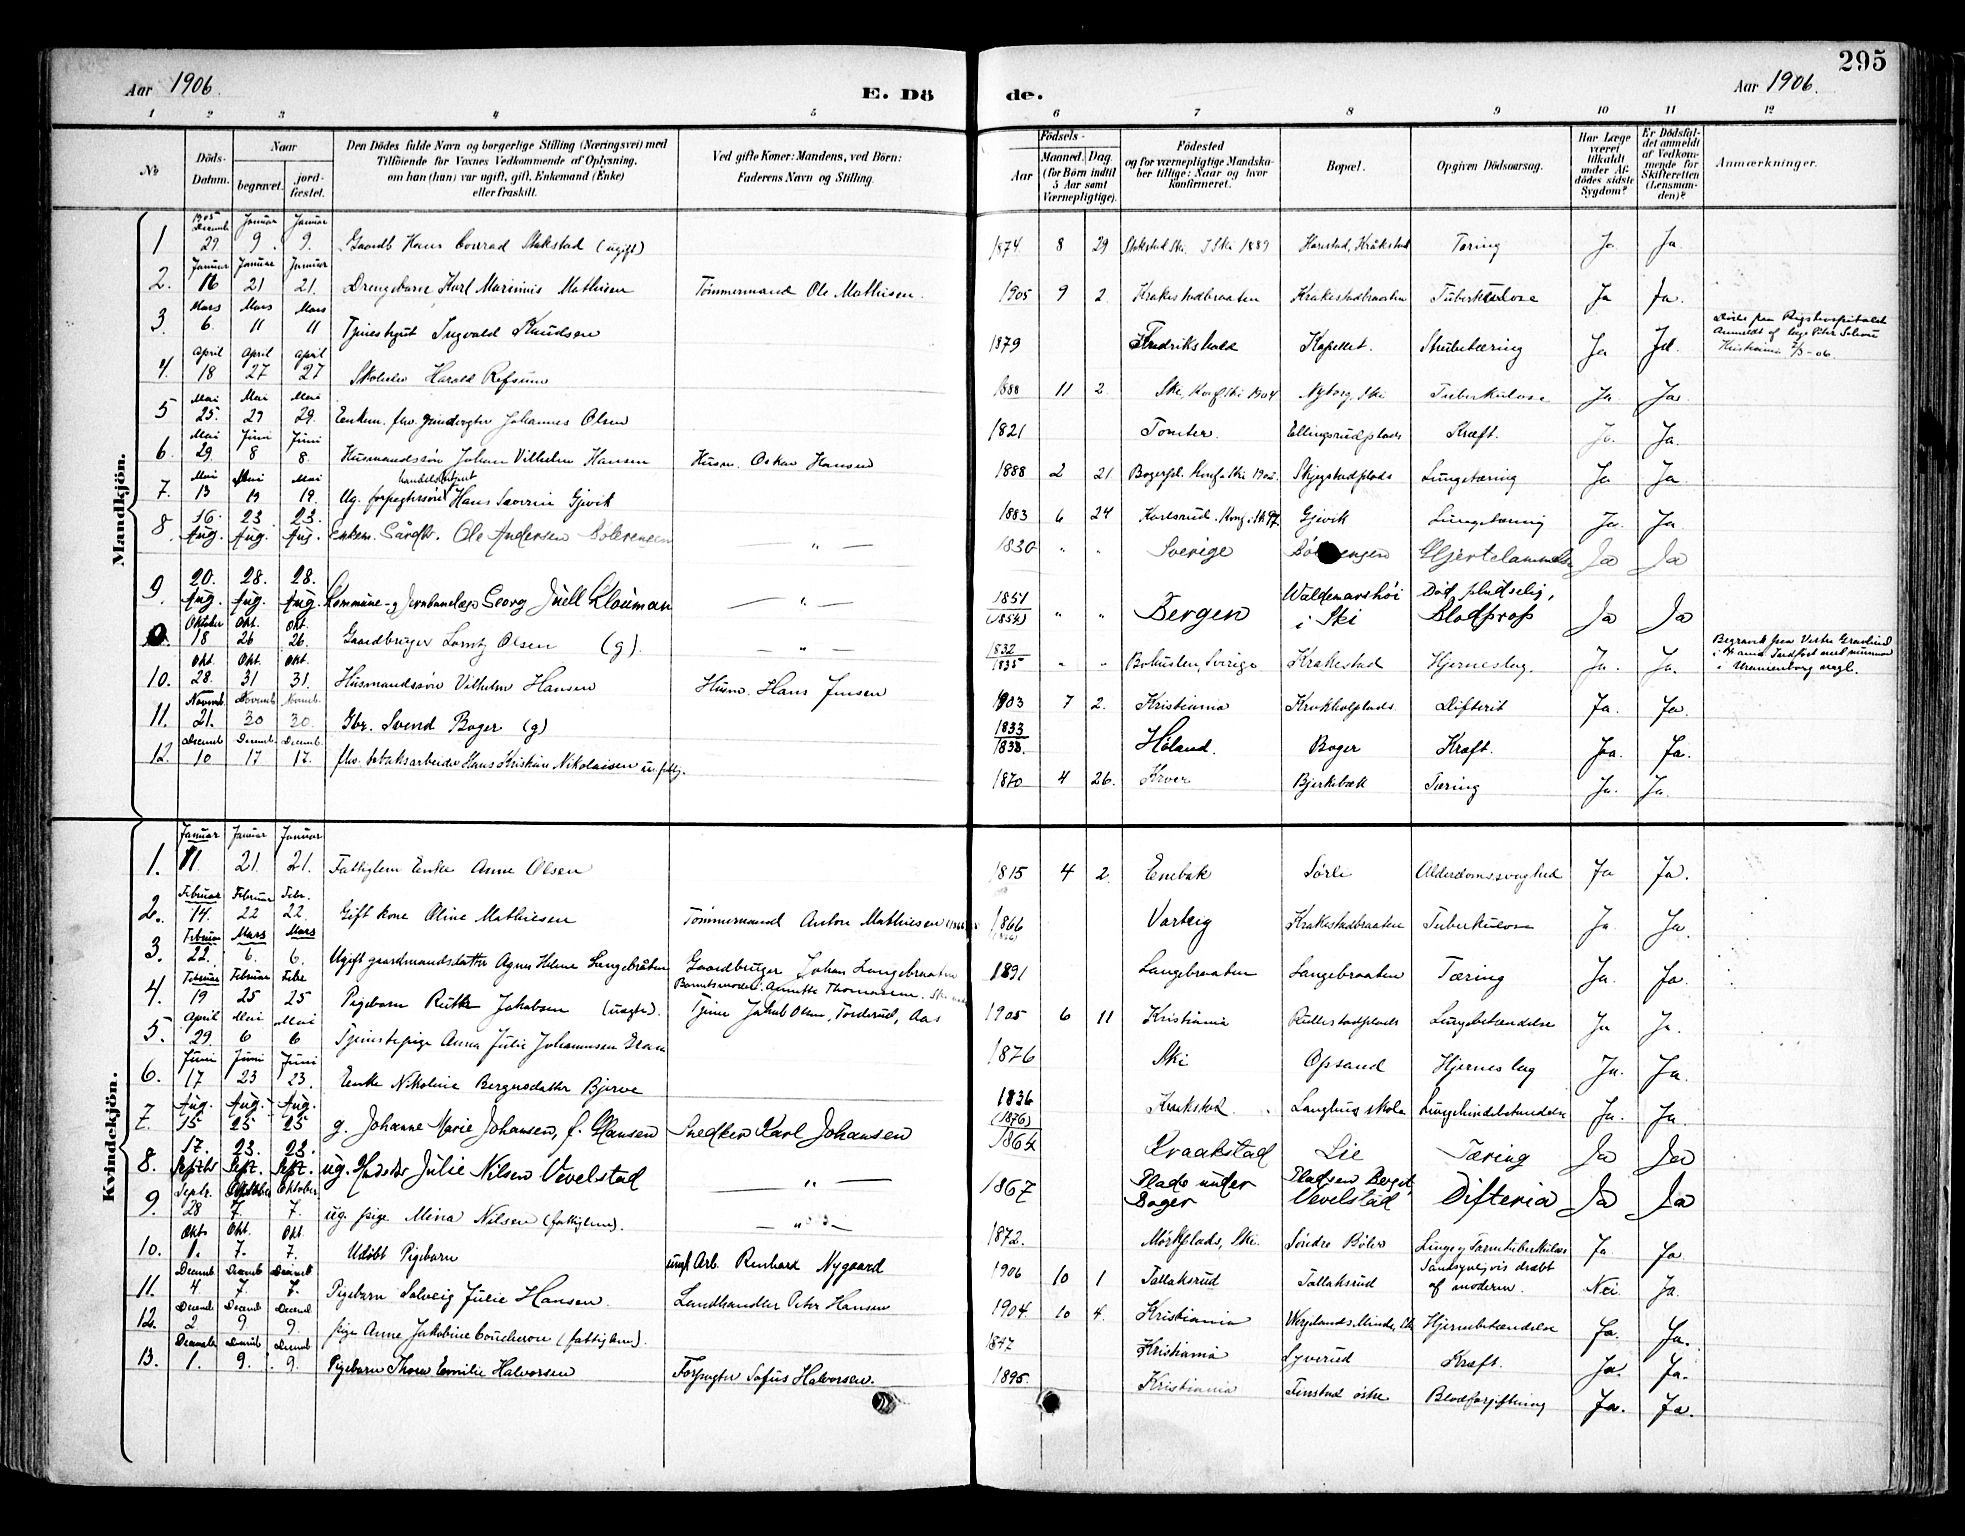 295
Aar 1906.
E. Dö
de.
Aar 1906.
1 2 3 4 5 6 7 8 9 10 11 12
No
Döds-Datum.
Naar
begravet.
jordfæstet.
Den Dödes fulde Navn og borgerlige Stilling (Næringsvei) med
Tilföiende for Voxnes Vedkommende af Oplysning,
om han (hun) var ugift, gift, Enkemand (Enke)
eller fraskilt.
Ved gifte Koner: Mandens, ved Börn:
Faderens Navn og Stilling.
Födsels-
Aar
Maaned. Dag
(for Börn indtil
5 Aar samt
Værnepligtige).
Födested
og for værnepligtige Mandska-
ber tillige: Naar og hvor
konfirmeret.
Bopæl.
Opgiven Dödsaarsag.
Har Læge
været
tilkaldt
under Af-
dödes sidste
Sygdom?
Er Dödsfal-
det anmeldt
af Vedkom-
mende for
Skifteretten
(Lensman-
den)?
Anmærkninger.
Mandkjön.
1 1905 Decemb 29 Januar 9. Januar 9. Gaardb Hans Conrad Stakstad (ugift) 1874 8 29 Stakstad Ski. I Ski 1889 Harestad, Kråkstad Tæring Ja Ja
2. Januar 16 Januar 21 Januar 21. Drengebarn Karl Marinius Mathisen Tömmermand Ole Mathisen. 1905 9 2 Krakestadbraaten Krakestadbraaten Tuberkulose Ja Ja.
3. Mars 6. Mars 11 Mars 11 Tjenestegut Ingvald Knudsen 1879 Fredrikshald Kapellet. Strubetæring Ja Ja Döde paa Rigshospitalet
Anmeldt af læge Peter
Kristiania 2/3-06.
4. April 18 April 27 April 27 Skoleelev Harald Refsum 1888 11 2. Ski, Konf Ski 1904 Nyborg, Ski Tuberkulose Ja Ja.
5 Mai 25. Mai 29 Mai 29. Enkem. fhv. Johannes Olsen 1821 Tomter. Ellingsrudplads Kræft. Ja. Ja.
6. Mai 29. Juni 8 Juni 8. Husmandssön Johan Vilhelm Hansen Husm. Oskar Hansen 1888 2 21 Bogerpl. Konf. Ski 1902. Skjegstadplads Lungetæring Ja Ja.
7. Mai 13 Mai 19 Mai 19. Ug. forpagtersön handelsbetjent Hans Severin Gjevik 1883 6 24 Karlsrud. Konf. Sk 97. Gjevik Lungetæring Ja. Ja.
8. 16. Aug. 23. Aug. 23. Aug. Enkem. Gårdbr. Ole Andersen Dölerengen — „ — 1830 „ „ Sverige Ja Ja
9. 20. Aug. 28. Aug. 28. Aug. Kommune- og Jernbanelæge Georg Juell Klouman — „ — 1851 (1854) „ „ Bergen Waldemarshöi
i Ski Död pludselig,
Blodprop Ja Ja
Oktober 18 Okt. 26 Okt. 26. Gaardbruger Lorntz Olsen (g). — „ — 1832 1835 „ „ Bohuslen, Sverige Krakestad Hjerneslag. Ja. Ja. Begravet paa Vestre Gravlund
10. Okt 28. Okt. 31 Okt. 31. Husmandssön Vilhelm Hansen Husm. Hans Jensen 1903 7 2. Kristiania Difterit Ja. Ja.
11. Novemb. 21. Novemb 30 Novemb. 30. Gbr. Svend Boger (g) 1833 1838. Höland. Boger Kræft. Ja. Ja.
12. Decemb 10 Decemb. 17 Decemb. 17. fhv. tobaksarbeider Hans Kristian Nikolaisen u. fattig. 1870 4 26. Kroer Bjerkebæk Tæring Ja. Ja.
Kvindekjön.
1. Januar 11. Januar 21 Januar 21. Fattiglem Enke Anne Olsen 1815 4 2. Enebak Sörli Alderdomssvaghed Ja Ja.
2. Februar 14. Februar 22 Febr. 22. Gift kone Oline Mathiesen Tömmermand Anton Mathiesen 1866 Varteig Krakestadbraaten Tuberkulose Ja. Ja.
3. Februar 22. Mars 6. Mars 6. Ugift gaardmandsdatter Agnes Helene Langebråten Gaardbruger Johan Langebraaten 1891 Langebraaten Langebraaten Tæring Ja. Ja.
4. Februar 19 Februar 25 Febr 25 Pigebarn Ruth Jakobsen (uægte). Barnetsmoder: Annette Thomasen.
Tjener Jakob Olsen, Törderud, Aas 1905 6 11 Kristiania Rullestadplads Lungebetændelse Ja Ja.
5. April 29. Mai 6 Mai 6 Tjenestepige Anna Julie Johannesen Gran 1876 Ski Opsand Hjerneslag Ja. Ja.
6. Juni 17 Juni 23 Juni 23. Enke Nikoline Bergersdatter Bjerve 1836 Krakstad. Langhus skole Ja. Ja.
7. Aug. 15 Aug. 25 Aug. 25 g. Johanne Marie Johansen, f. Hansen Snedker Karl Johansen (1876) 1864 Kraakstad Lie Tæring Ja Ja
8. 17. Septbr 23. Sept. 23. Sept. ug. Julie Nilsen Vevelstad — „ — 1867 Plads under
Boger Pladsen Berget,
Vevelstad Difteria Ja Ja
9. Septr. 28 Oktober 7. Oktober 7. ug. pige Mina Nilsen (fattiglem). — „ — 1872. Mörkplads, Ski. Söndre Böler Lunge og Tarmtuberkulose Ja. Ja.
10. Okt. 1. Okt. 7. Okt. 7. Udöbt Pigebarn ungk. Arb. Reinhard Nygaard 1906 10 1 Tallaksrud Tallaksrud Sandsynligvis dræbt
af moderen. Nei Ja.
11. Decemb 4 Decemb 7. Decemb 7. Pigebarn Solveig Julie Hansen. Landhandler Peter Hansen 1904. 10 4. Kristiania Wergelands Minde, Ski Hjernebetændelse Ja. Ja.
12. Decemb 2 Decemb 9. Decemb 9. pige Anne Jakobine Coucheron (fattiglem). 1847 Kristiania Lyverud Kræft. Ja. Ja.
13. Decemb 1. Decemb 9. Decemb 9. Pigebarn Thora Emilie Halvorsen Forpagter Sofus Halvorsen. 1895. Kristiania Finstad östre Blodforgiftning Ja. Ja.